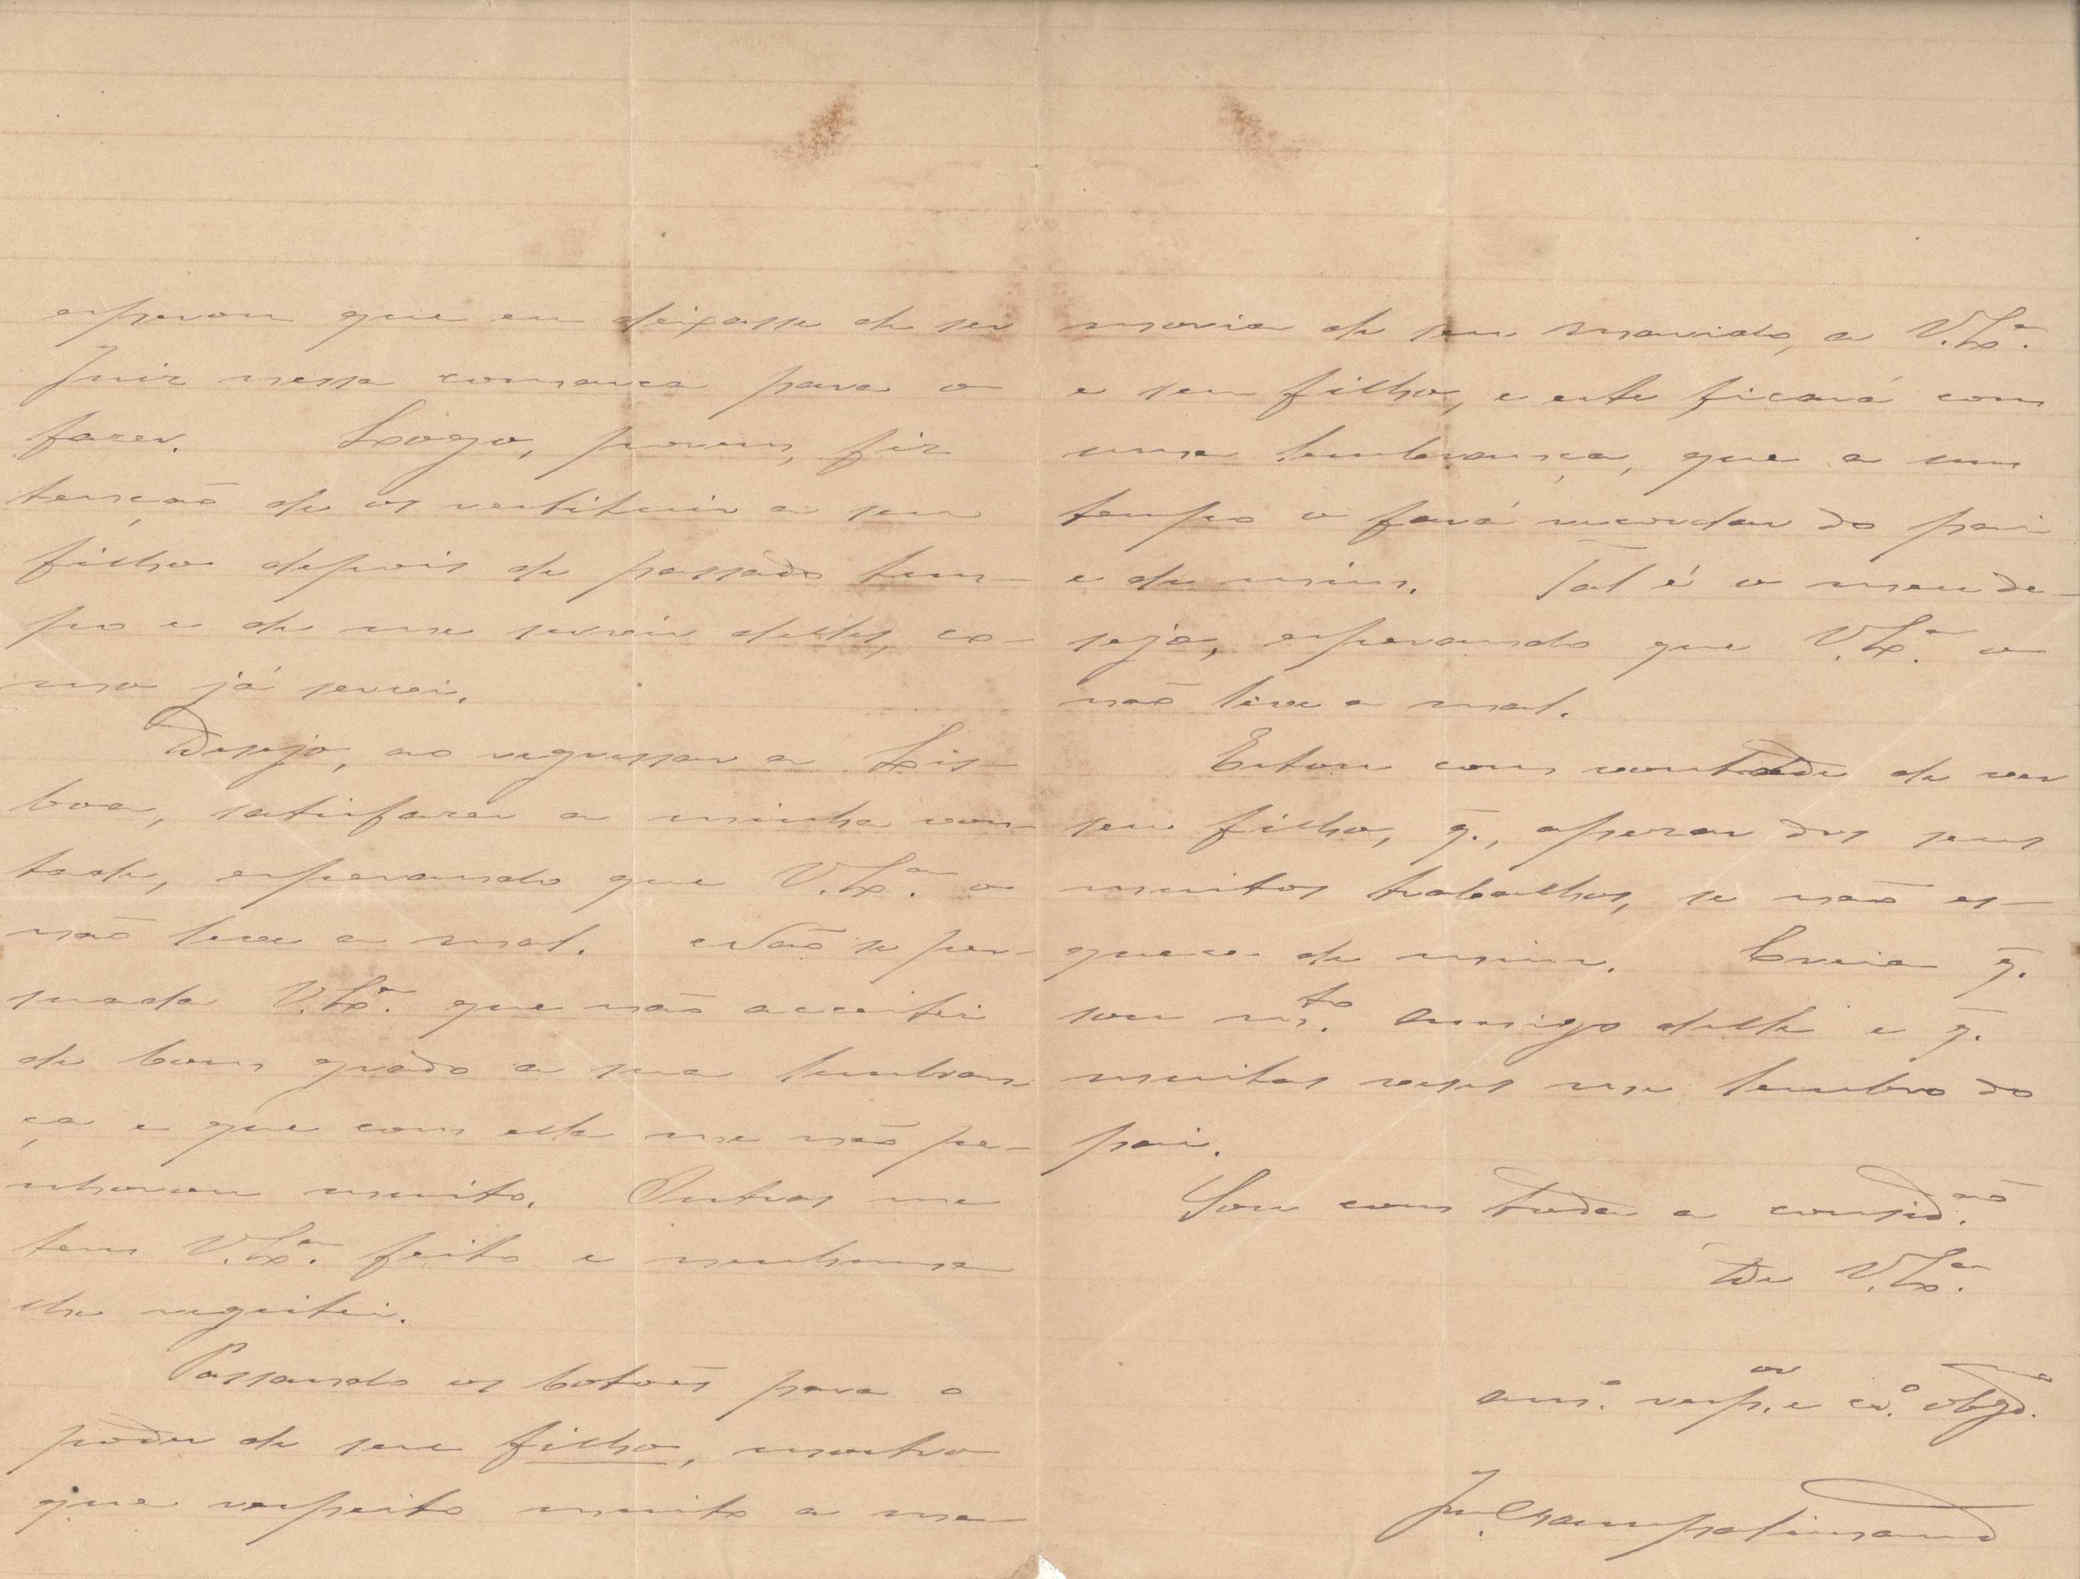 esperou que eu deixasse de ser
Juiz nessa comarca para o
fazer. Lógo, porem, fiz
tenção de os restituir a seu
filho depois de passado tem-
po e de me servir delles, co-
mo já servi.
Desejo, ao regressar a Lis-
boa, satisfazer a minha von-
tade, esperando que V. Ex.ª o
não leve a mal. Não se per-
suada V. Ex.ª que não acceitei
de bom grado a sua lembran
ça e que com ella me não pe-
nhorou muito. Outras me
tem V. Ex.ª feito e nenhuma
lhe regeitei.
Passando os botões para o
poder de seu filho, mostro
que respeito muito a me-
moria de seu marido, a V. Ex.ª
e seu filho, e este ficará com
uma lembrança, que a um
tempo o fará recordar do pai
e de mim. Tal é o meu de-
sejo, esperando que V. Ex.ª o
não leve a mal.
Estou com vontade de ver
seu filho, q̃., apezar dos seus
muitos trabalhos, se não es-
quece de mim. Creia q̃.
sou m.to amigo delle e q̃.
muitas vezes me lembro do
pai.
Sou com toda a consid.ão
De V. Ex.ª
am.º resp.or e cr.º obgd.º
J. Champalimaud